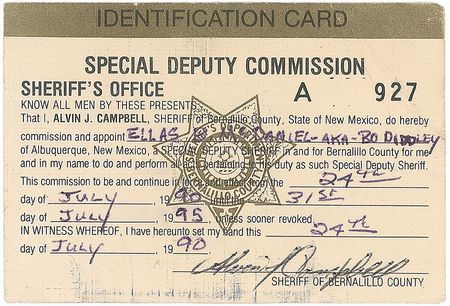 IDENTIFICATION CARD
SPECIAL DEPUTY COMMISSION
SHERIFF'S OFFICE A 927
KNOW ALL MEN BY THESE PRESENTS:
That I, ALVIN J. CAMPBELL, SHERIFF of Bernalillo County, State of New Mexico, do hereby
commission and appoint ELLAS McDANIEL-AKA-BO DIDDLEY
of Albuquerque, New Mexico, a SPECIAL DEPUTY in and for Bernalillo County for me
and in my name to do and perform all acts pertaining to his duty as such Special Deputy Sheriff.
This commission to be and continue in force and effect from the 24th
day of JULY 1990 until the 31ST
day of JULY 1995 unless sooner revoked
IN WITNESS WHEREOF, I have hereunto set my hand this 24th
day of JULY 1990
Alvin J Campbell
SHERIFF OF BERNALILLO COUNTY